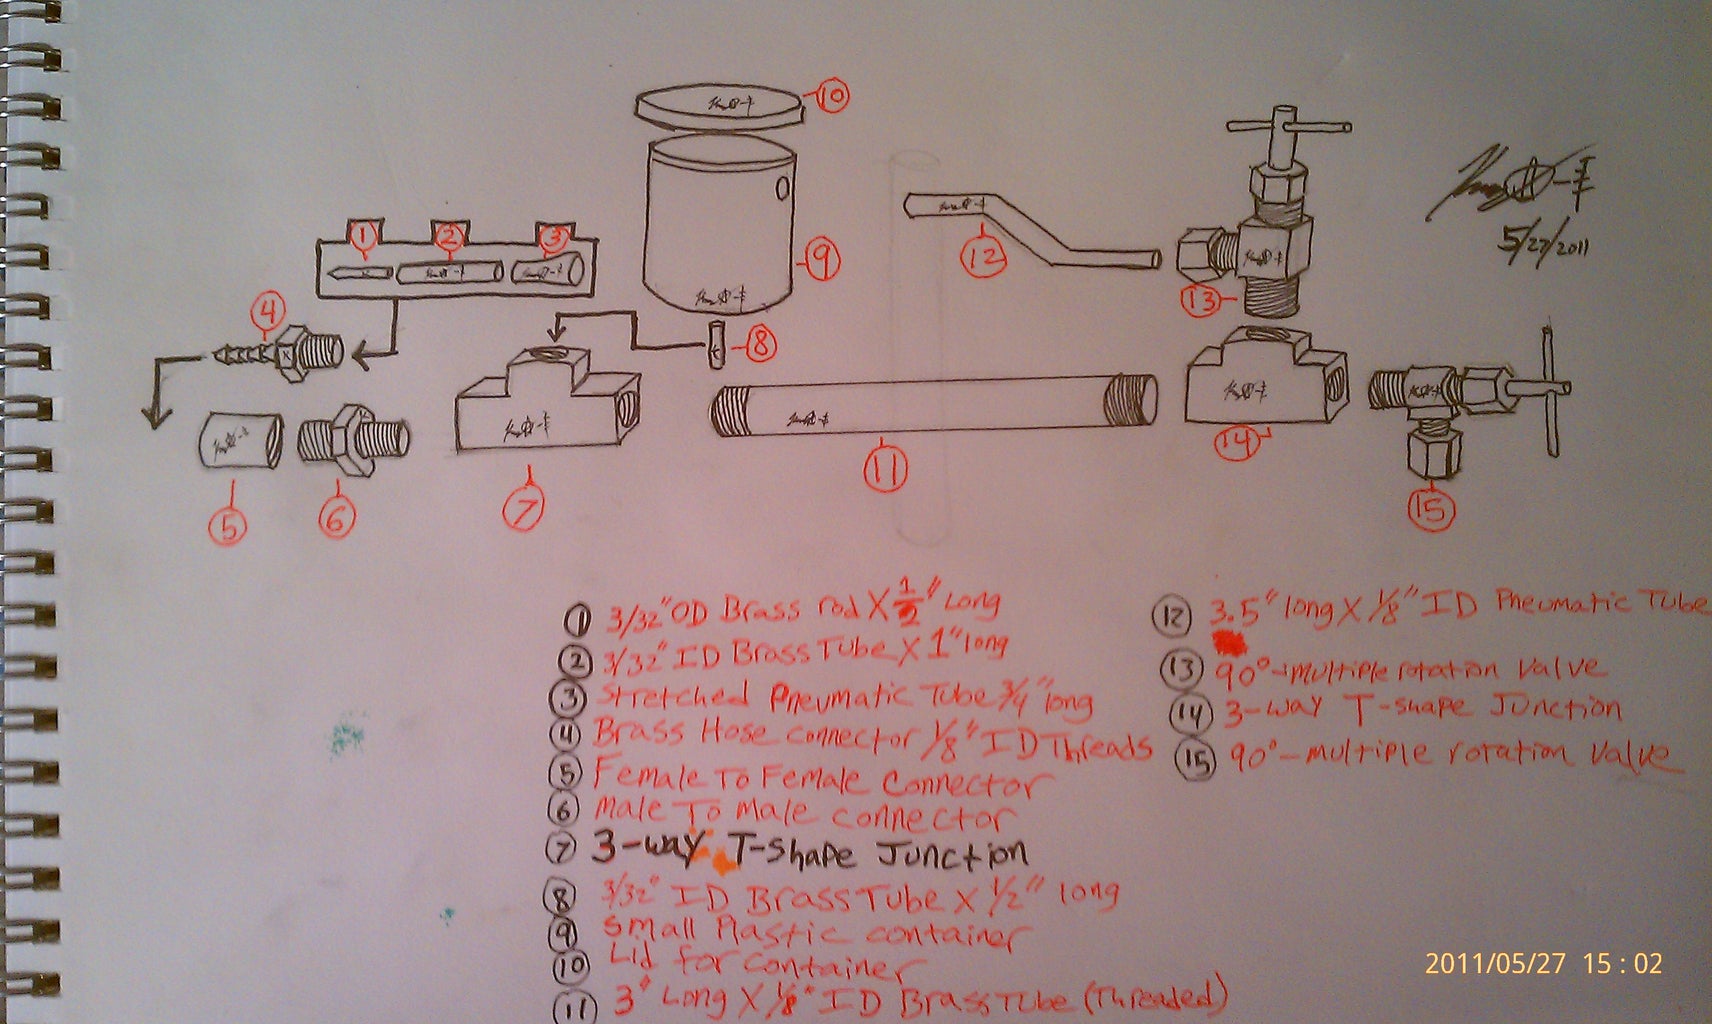 10
1
2
3
12
9
4
13
8
5/27/2011
14
11
5
6
7
15
1 3/32" OD Brass rod X 1/2" Long
2 3/32" ID Brass Tube X 1" long
3 Stretched Pneumatic Tube 3/4" long
4 Brass Hose connector 1/8" ID Threads
5 Female To Female Connector
6 Male To Male connector
7 3-way T-shape Junction
8 3/32" ID Brass Tube X 1/2" long
9 Small Plastic container
10 Lid for container
11 3" Long X 1/8" ID Brass Tube (Threaded)
12 3.5" long X 1/8" ID Pneumatic Tube
13 90°-multiple rotation valve
14 3-way T-shape Junction
15 90°-multiple rotation valve
2011/05/27 15:02